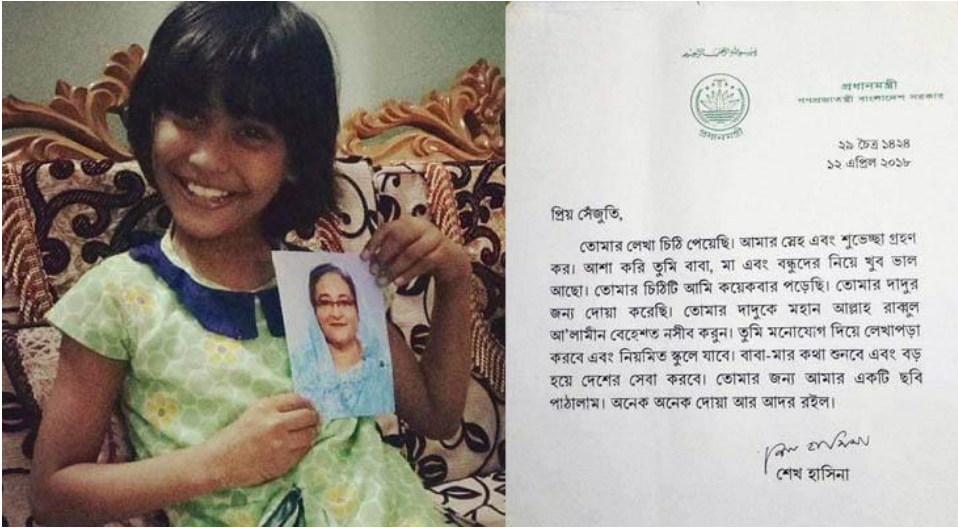 প্রধানমন্ত্রী
গণপ্রজাতন্ত্রী বাংলাদেশ সরকার
প্রধানমন্ত্রী
২৯ চৈত্র ১৪২৪
১২ এপ্রিল ২০১৮
প্রিয় সেঁজুতি,
তোমার লেখা চিঠি পেয়েছি। আমার স্নেহ এবং শুভেচ্ছা গ্রহণ
কর। আশা করি তুমি বাবা, মা এবং বন্ধুদের নিয়ে খুব ভাল
আছো। তোমার চিঠিটি আমি কয়েকবার পড়েছি। তোমার দাদুর
জন্য দোয়া করেছি। তোমার দাদুকে মহান আল্লাহ রাব্বুল
আ'লামীন বেহেশত নসীব করুন। তুমি মনোযোগ দিয়ে লেখাপড়া
করবে এবং নিয়মিত স্কুলে যাবে। বাবা-মার কথা শুনবে এবং বড়
হয়ে দেশের সেবা করবে। তোমার জন্য আমার একটি ছবি
পাঠালাম। অনেক অনেক দোয়া আর আদর রইল।
শেখ হাসিনা